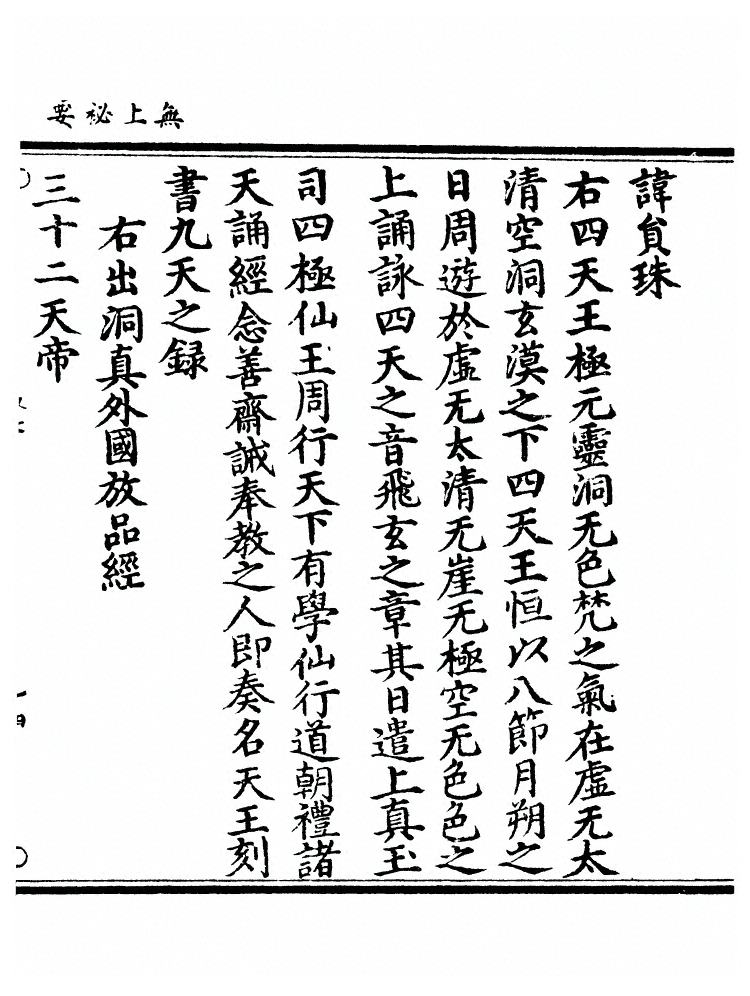 無上祕要
諱貟珠
右四天王極元靈洞无色梵之氣在虛无太
清空洞玄漠之下四天王恒以八節月朔之
日周遊於虛无太清无崖无極空无色色之
上誦詠四天之音飛玄之章其日遣上真玉
司四極仙王周行天下有學仙行道朝禮諸
天誦經念善齋誠奉教之人即奏名天王刻
書九天之録
右出洞真外國放品經
三十二天帝